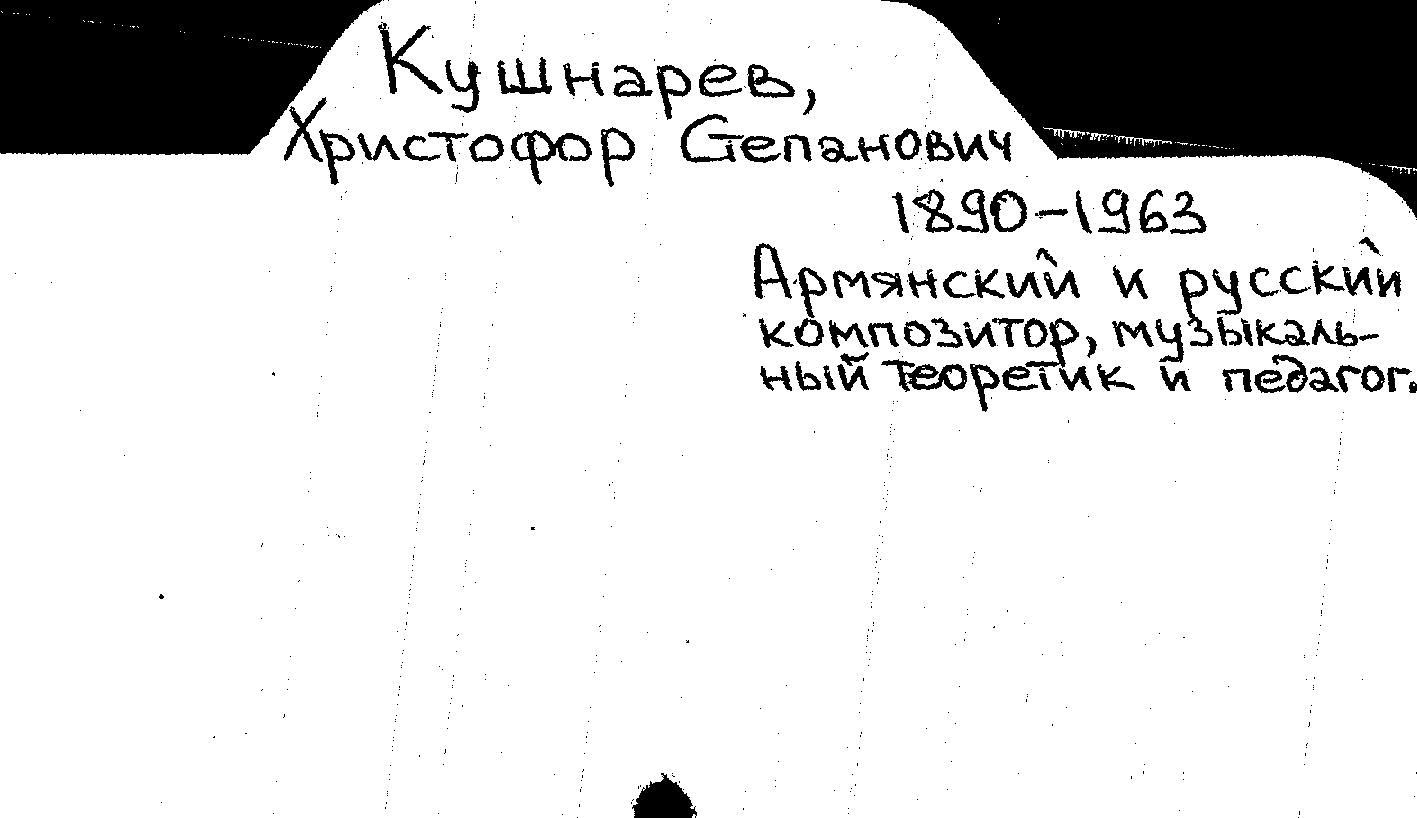 Кушнарев,
Христофор Степанович
1890-1963
Армянский и русский
композитор, музыкаль-
ный теоретик и педагог.